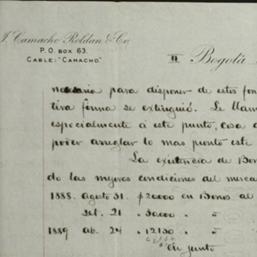 J. Camacho Roldan & Co.
P.O. BOX 63.
CABLE: "CAMACHO"
Bogotá
necesario para disponer de estos fon
tiva forma se extinguió. Le llam
especialmente á este punto, cosa d
poder arreglar lo mas pronto este
La existencia de Bon
do las mejores condiciones del merca
1888. Agosto 31. $20000 en Bonos al
Set. 21 " 30.000 " "
1889 Ab. 24 " 12150 " "
En junto